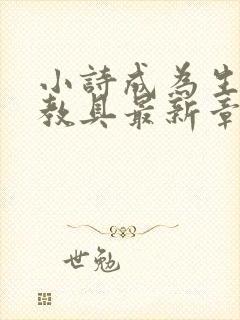 小詩成為生
教具最新章
世勉